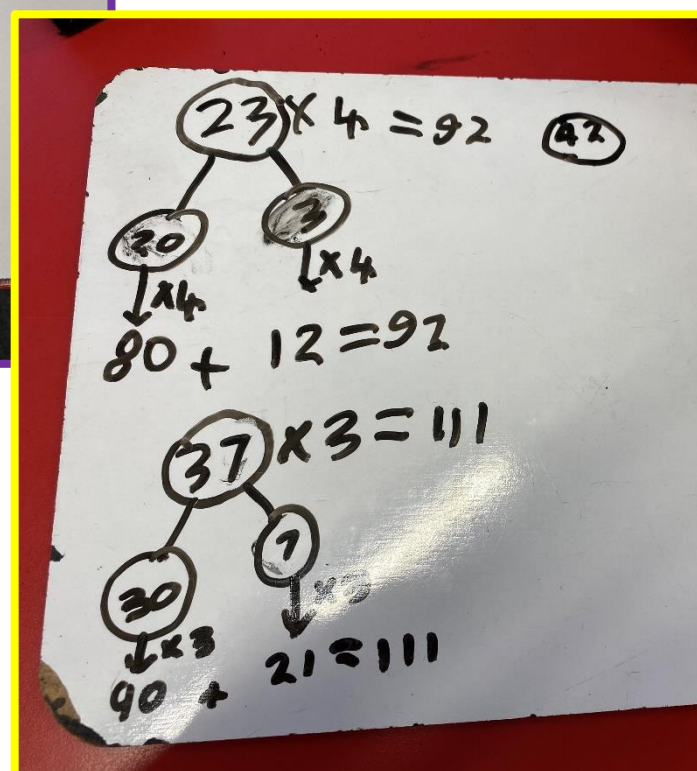 23 × 4 = 92 42
20 3
×4 ×4
80 + 12 = 92
37 × 3 = 111
30 7
×3 ×3
90 + 21 = 111